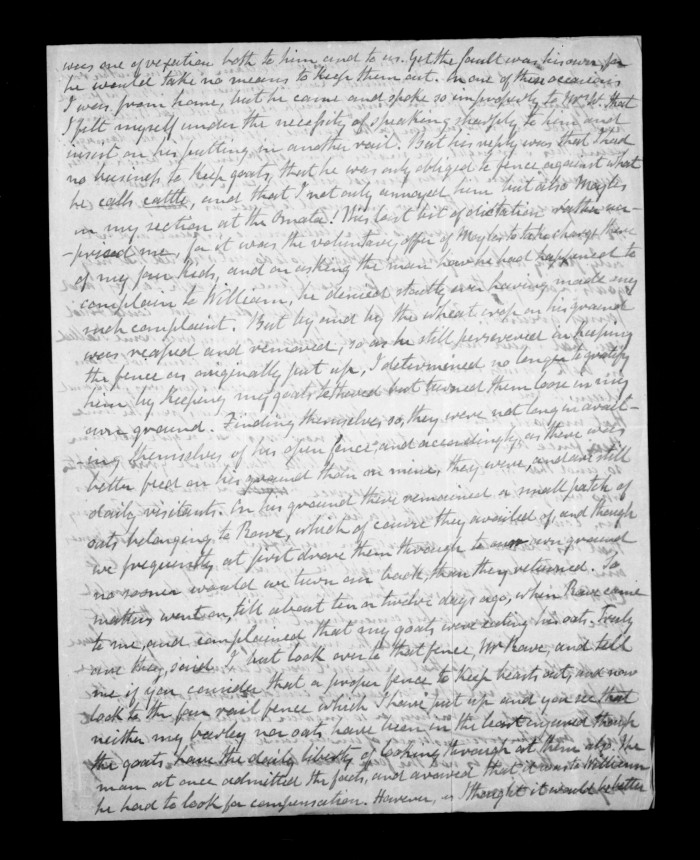 was one of vexation both to him and to us. Yet the fault was his own, for
he would take no means to keep them out. On one of these occasions
I was from home, but he came and spoke so improperly to Mrs W. that
I felt myself under the necessity of speaking sharply to him and
insist on his putting in another rail. But his reply was that I had
no business to keep goats, that he was only obliged to fence against what
he calls cattle, and that I not only annoyed him but also Mayles
on my section at the Omata! This last bit of dictation rather sur-
-prised me, for it was the voluntary offer of Mayles to take charge there
of my four Kids, and on asking the man how he had happened to
complain to William, he denied stoutly ever having made any
such complaint. But by and by the wheat crop on his ground
was reaped and removed, so as he still persevered in keeping
the fence as originally put up, I determined no longer to gratify
him by keeping my goats tethered but turned them loose in my
own ground. Finding themselves so, they were not long in avail-
-ing themselves of his open fence, and accordingly, as there was
better feed on his ground than on mine, they were, and are still
daily visitants. In his ground there remained a small patch of
oats belonging to Rowe, which of course they availed of, and though
we frequently at first drove them through to our own ground
no sooner would we turn our back than they returned. So
matters went on, till about ten or twelve days ago, when Rowe came
to me, and complained that my goats were eating his oats. Truly
are they, said I, but look over to that fence, Mr Rowe, and tell
me if you consider that a proper fence to keep beasts out, and now
look to the four rail fence which I have put up and you see that
neither my barley nor oats have been in the least injured though
the goats have the daily liberty of looking through at them also. The
man at once admitted the facts, and avowed that it was to William
he had to look for compensation. However, as I thought it would be better